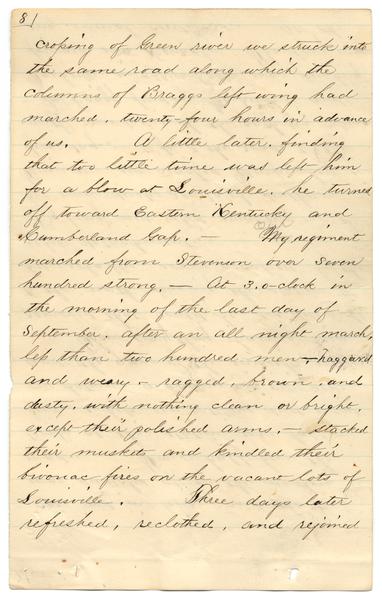 81
crossing of Green river we struck into
the same road along which the
columns of Braggs left wing had
marched. twenty-four hours in advance
of us. A little later. finding
that too little time was left him
for a blow at Louisville. he turned
off toward Eastern Kentucky and
Cumberland Gap. — My regiment
marched from Stevenson over seven
hundred strong. — At 3. o-clock in
the morning of the last day of
September. after an all night march,
less than two hundred men — haggard
and weary - ragged, brown. and
dusty. with nothing clean or bright,
except their polished arms, — stacked
their muskets and kindled their
bivouac fires on the vacant lots of
Louisville. Three days later
refreshed, reclothed, and rejoined